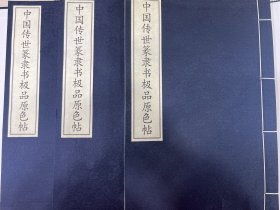 中国传世篆隶书极品原色帖
中国传世篆隶书极品原色帖
中国传世篆隶书极品原色帖